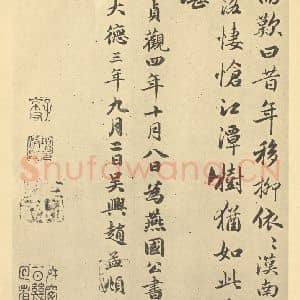 而歎曰昔年移柳依〻漢南
落悽愴江潭樹猶如此
堪
貞觀四年十月八日為燕國公書
大德三年九月二日吳興趙孟頫
Shufawang.CN